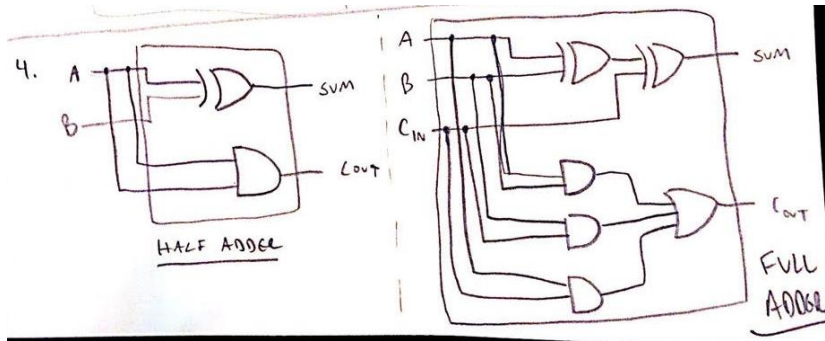 4.
A
B
SUM
COUT
HALF ADDER
A
B
CIN
SUM
COUT
FULL
ADDER